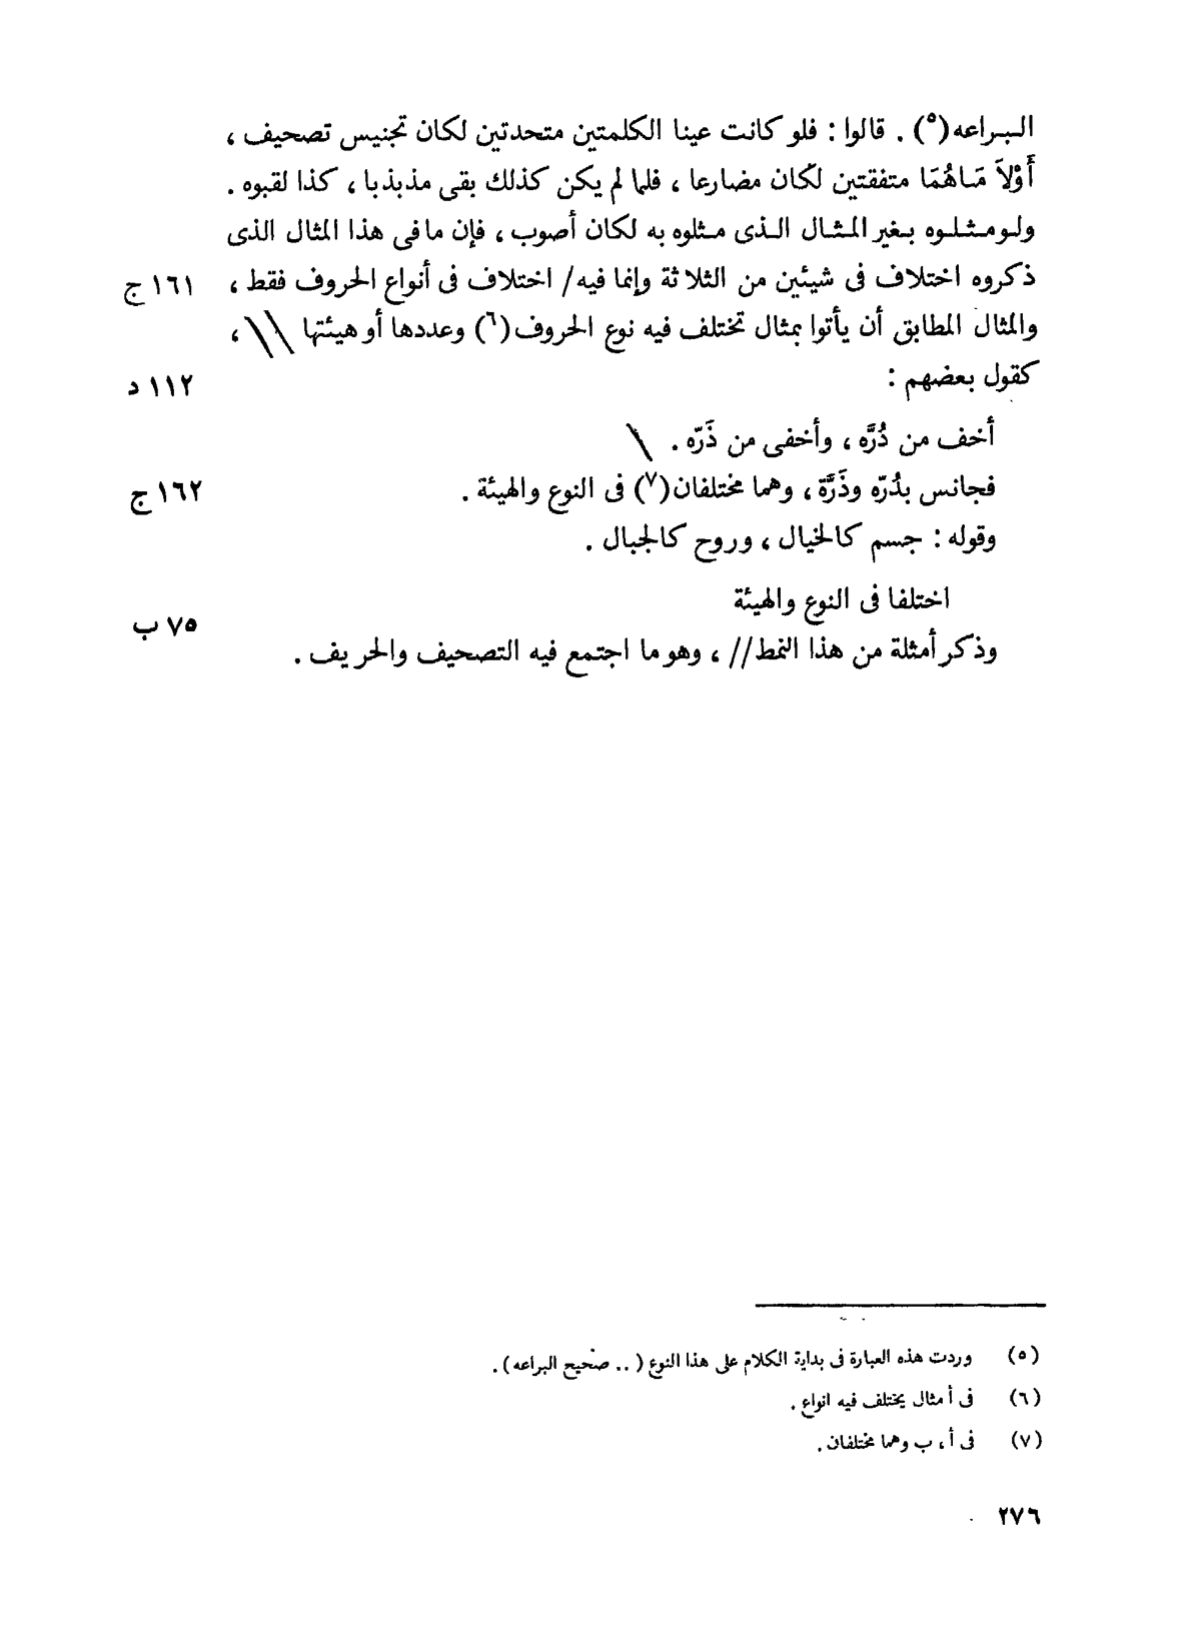 البراعه(٥) . قالوا : فلو كانت عينا الكلمتين متحدتين لكان تجنيس تصحيف ،
أَوْلاَ مَاهُمَا متفقتين لكان مضارعا ، فلما لم يكن كذلك بقى مذبذبا ، كذا لقبوه .
ولو مثلوه بغير المثال الذى مثلوه به لكان أصوب ، فإن ما فى هذا المثال الذى
ذكروه اختلاف فى شيئين من الثلاثة وإنما فيه/ اختلاف فى أنواع الحروف فقط ، ١٦١ ج
والمثال المطابق أن يأتوا بمثال تختلف فيه نوع الحروف(٦) وعددها أو هيئتها \\ ،
كقول بعضهم : ١١٢ د
أخف من دُرَّه ، وأخفى من ذَرّه . \
فجانس بدُرّه وذَرَّة ، وهما مختلفان(٧) فى النوع والهيئة . ١٦٢ ج
وقوله : جسم كالخيال ، وروح كالجبال .
اختلفا فى النوع والهيئة
وذكر أمثلة من هذا النمط// ، وهو ما اجتمع فيه التصحيف والحريف . ٧٥ ب
(٥) وردت هذه العبارة فى بداية الكلام على هذا النوع ( .. صحيح البراعه ) .
(٦) فى أ مثال يختلف فيه انواع .
(٧) فى أ ، ب وهما مختلفان .
٢٧٦